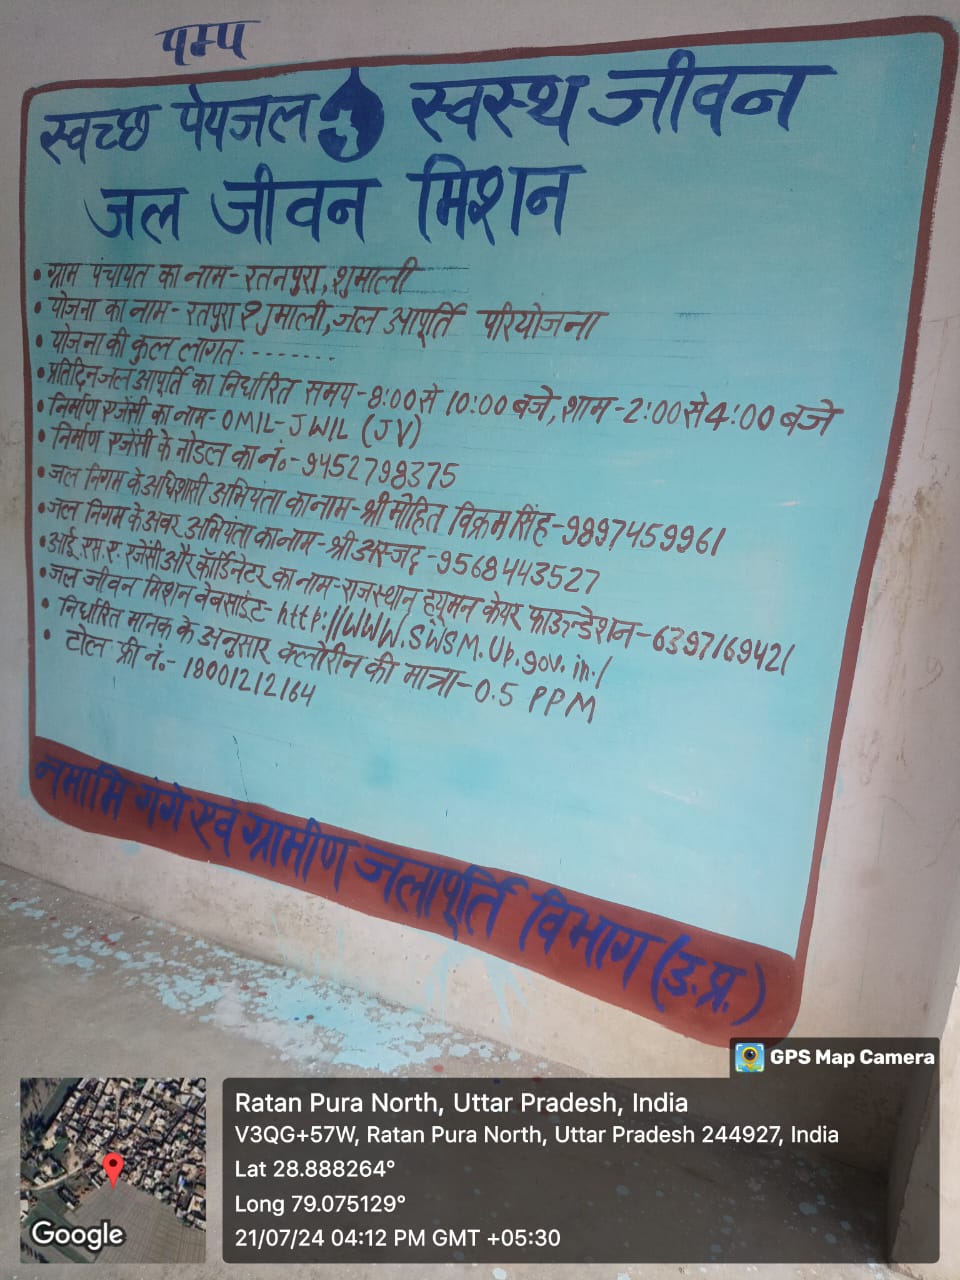 पम्प
स्वच्छ पेयजल स्वस्थ जीवन
जल जीवन मिशन
• ग्राम पंचायत का नाम - रतनपुरा, शुमाली
• योजना का नाम - रतपुरा शुमाली, जल आपूर्ति परियोजना
• योजना की कुल लागत ........
• प्रतिदिन जल आपूर्ति का निर्धारित समय - 8:00 से 10:00 बजे, शाम - 2:00 से 4:00 बजे
• निर्माण एजेंसी का नाम - OMIL - JWIL (JV)
• निर्माण एजेंसी के नोडल का नं॰ - 9452798375
• जल निगम के अधिशासी अभियंता का नाम - श्री मोहित विक्रम सिंह - 9897459961
• जल निगम के अवर अभियंता का नाम - श्री अस्जद - 9568443527
• आई. एस. ए. एजेंसी और कॉर्डिनेटर का नाम - राजस्थान ह्यूमन केयर फाउन्डेशन - 6397169421
• जल जीवन मिशन वेबसाईट - http://WWW.SWSM.Up.gov.in./
• निर्धारित मानक के अनुसार क्लोरीन की मात्रा - 0.5 PPM
• टोल फ्री नं. - 18001212164
नमामि गंगे एवं ग्रामीण जलापूर्ति विभाग (उ.प्र.)
GPS Map Camera
Ratan Pura North, Uttar Pradesh, India
V3QG+57W, Ratan Pura North, Uttar Pradesh 244927, India
Lat 28.888264°
Long 79.075129°
21/07/24 04:12 PM GMT +05:30
Google